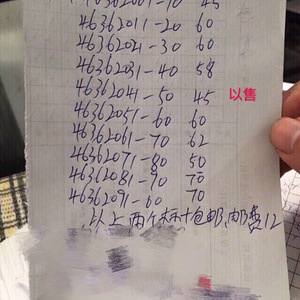 46362001-10 45
46362011-20 60
46362021-30 60
46362031-40 58
46362041-50 45 以售
46362051-60 60
46362061-70 62
46362071-80 50
46362081-90 70
46362091-60 70
以上两个标十包邮,邮费12